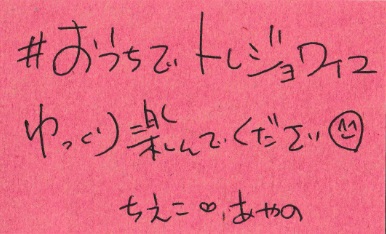 #おうちでトレジョワイユ
ゆっくり楽しんでください
ちえこ♡あやの